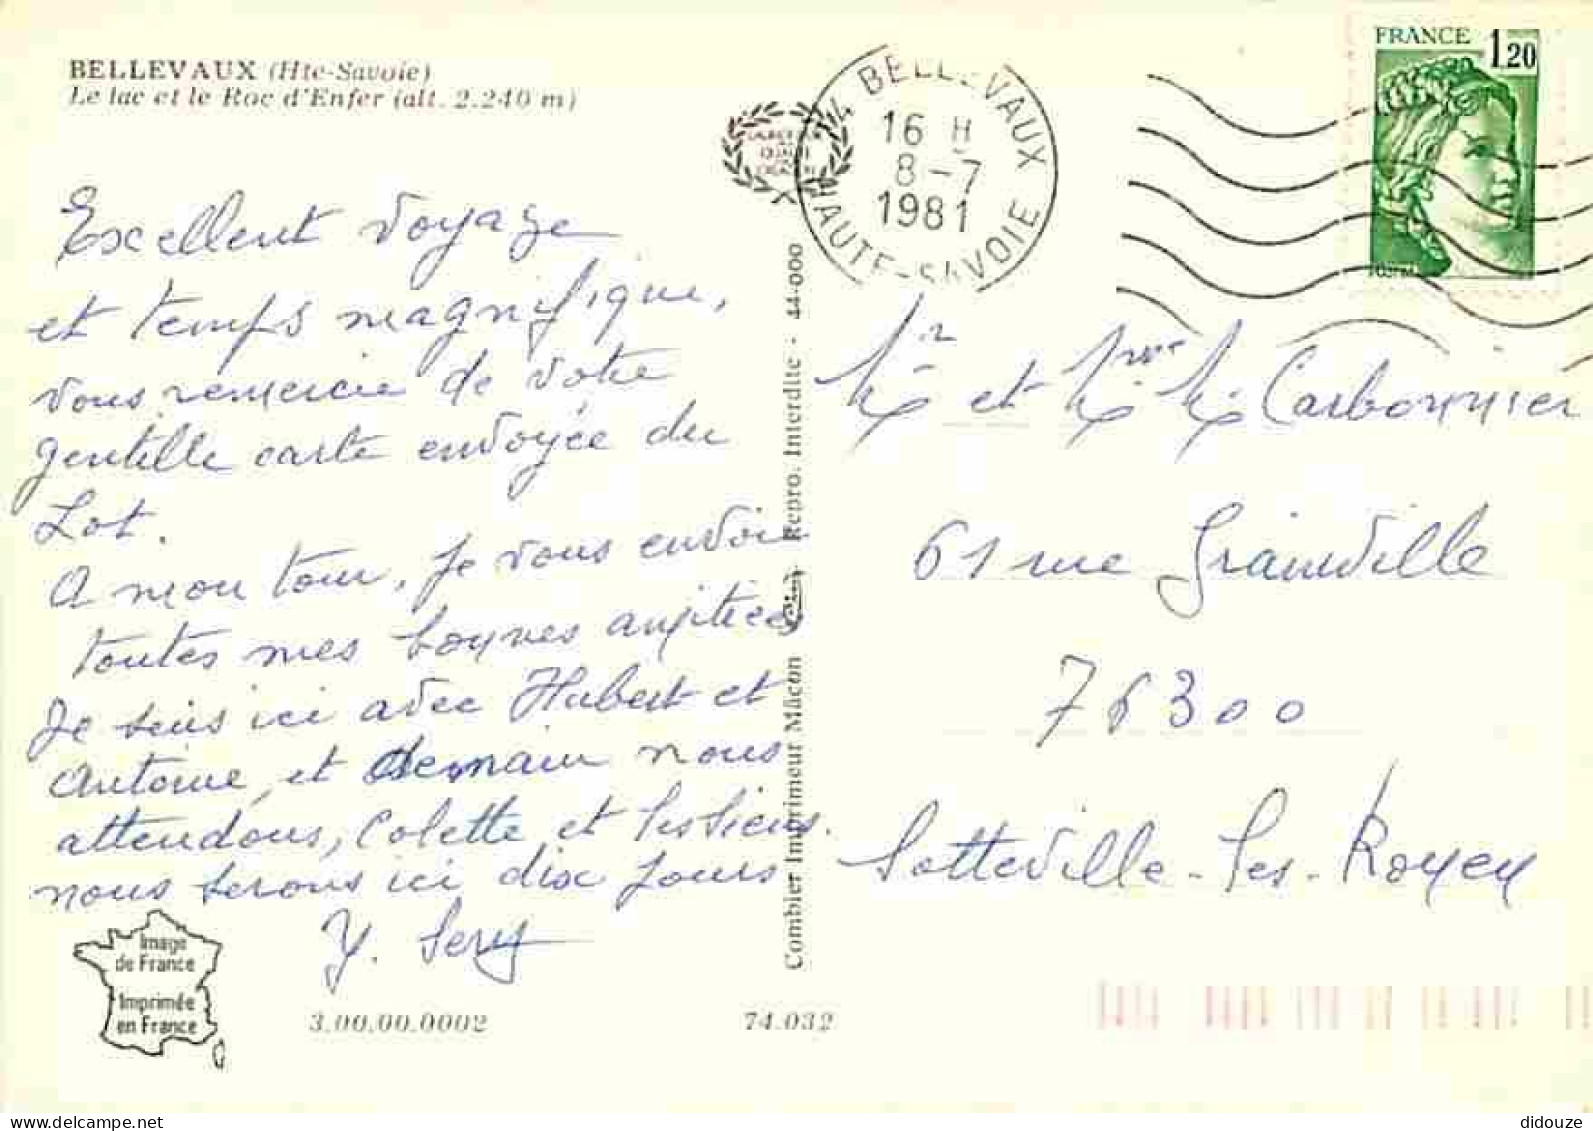 BELLEVAUX (Hte-Savoie)
Le lac et le Roc d'Enfer (alt. 2.240 m)
74 BELLEVAUX
16 H
8-7
1981
HAUTE-SAVOIE
FRANCE 1,20
Excellent voyage
et temps magnifique,
vous remercie de votre
gentille carte envoyée du
Lot.
A mon tour, je vous envoie
toutes mes bonnes amitiés
Je suis ici avec Hubert et
Antoine, et demain nous
attendons, Colette et les siens.
nous serons ici dix jours
Y.
Combier Imprimeur Mâcon
Repro. Interdite - 44-000
Mr et Mme M. Carbonnier
61 rue Grainville
76300
Sotteville-les-Rouen
Image
de France
Imprimée
en France
3.00.00.0002
74.032
didouze